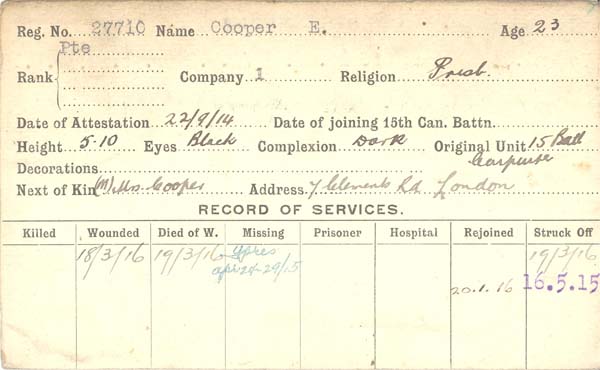 Reg. No. 27710 Name Cooper E. Age 23
Pte
Rank Company 1 Religion Presb.
Date of Attestation 22/9/14 Date of joining 15th Can. Battn.
Height 5·10 Eyes Black Complexion Dark Original Unit 15 Batt
Decorations Carpenter
Next of Kin (M) Mrs. Cooper Address 7 Clements Rd. London
RECORD OF SERVICES.
Killed Wounded Died of W. Missing Prisoner Hospital Rejoined Struck Off
18/3/16 19/3/16 Ypres 19/3/16
apr 24-29/15
20.1.16 16.5.15